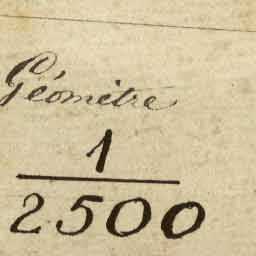 Géomètre
1
2500